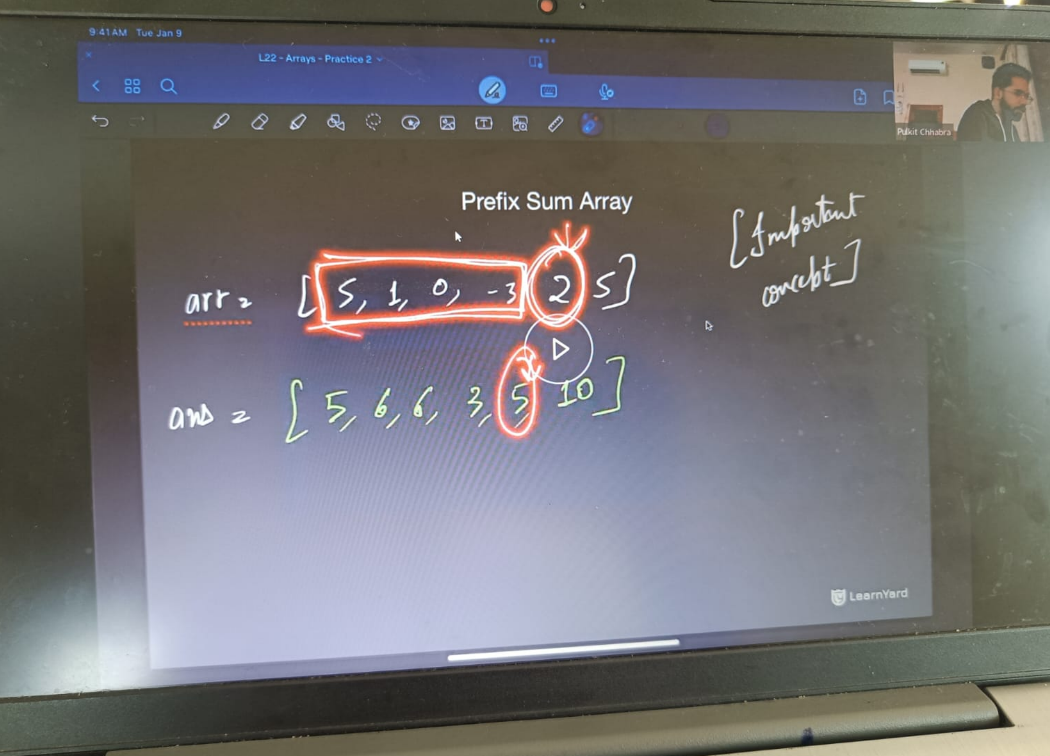 9:41 AM Tue Jan 9
L22 - Arrays - Practice 2
Pulkit Chhabra
Prefix Sum Array
[Important
concept]
arr = [5, 1, 0, -3 2 5]
ans = [5, 6, 6, 3, 5, 10]
LearnYard